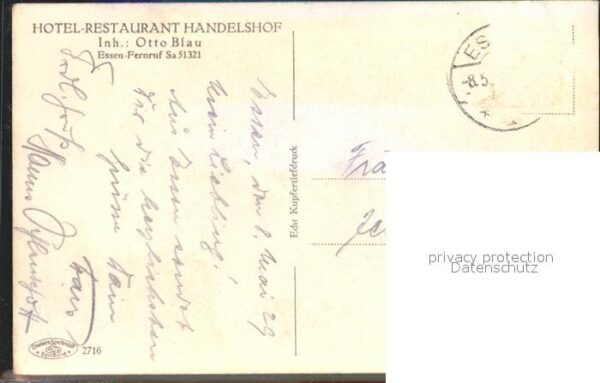 HOTEL-RESTAURANT HANDELSHOF
Inh.: Otto Blau
Essen-Fernruf Sa 51321
Essen, den 8. Mai 29
Mein Liebling!
Aus Essen sendet
Dir die herzlichsten
Grüsse Dein
Franz
Hanns
Echt Kupfertiefdruck
ES
-8.5
2716
privacy protection
Datenschutz